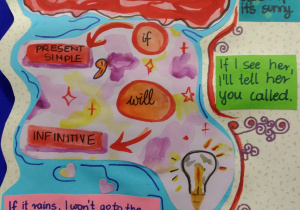 it's sunny.
if
PRESENT
SIMPLE
If I see her,
I'll tell her
you called.
will
INFINITIVE
If it rains, I won't go to the